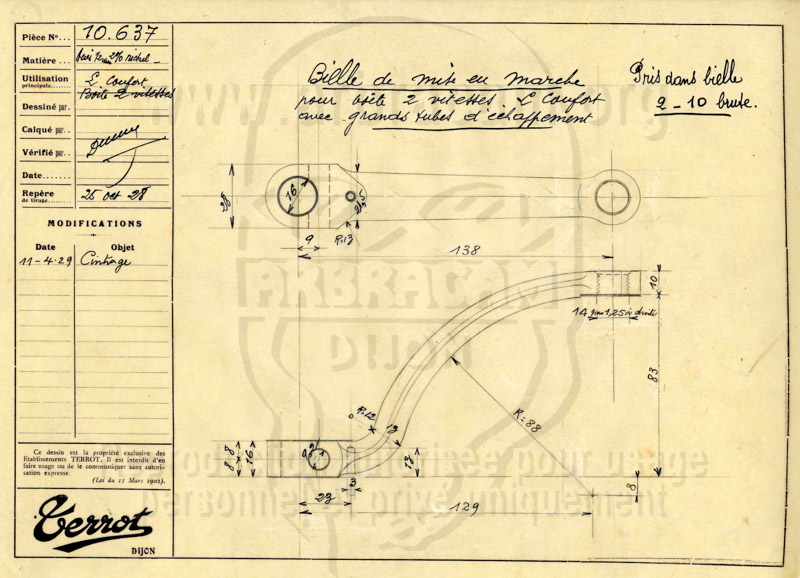 Pièce N°... 10.637
Matière... nickel
Utilisation principale... L Confort
Boite 2 vitesses
Dessiné par.
Calqué par..
Vérifié par..
Date......
Repère de tirage...... 25 oct 28
MODIFICATIONS
Date Objet
11-4-29 Cintrage
Ce dessin est la propriété exclusive des
Etablissements TERROT. Il est interdit d'en
faire usage ou de le communiquer sans autori-
sation expresse.
(Loi du 11 Mars 1902).
Terrot
DIJON
Bielle de mise en marche
pour boite 2 vitesses. L Confort
avec grands tubes d'échappement
Pris dans bielle
2-10 brute.
28
16
9
R=13
138
10
14 pas 1,25 à droite
83
R=12
13
R=88
8 8
16
9,5
13
8
23
3
129
AKBRACAM
DIJON
Reproduction autorisée pour usage
personnel et privé uniquement